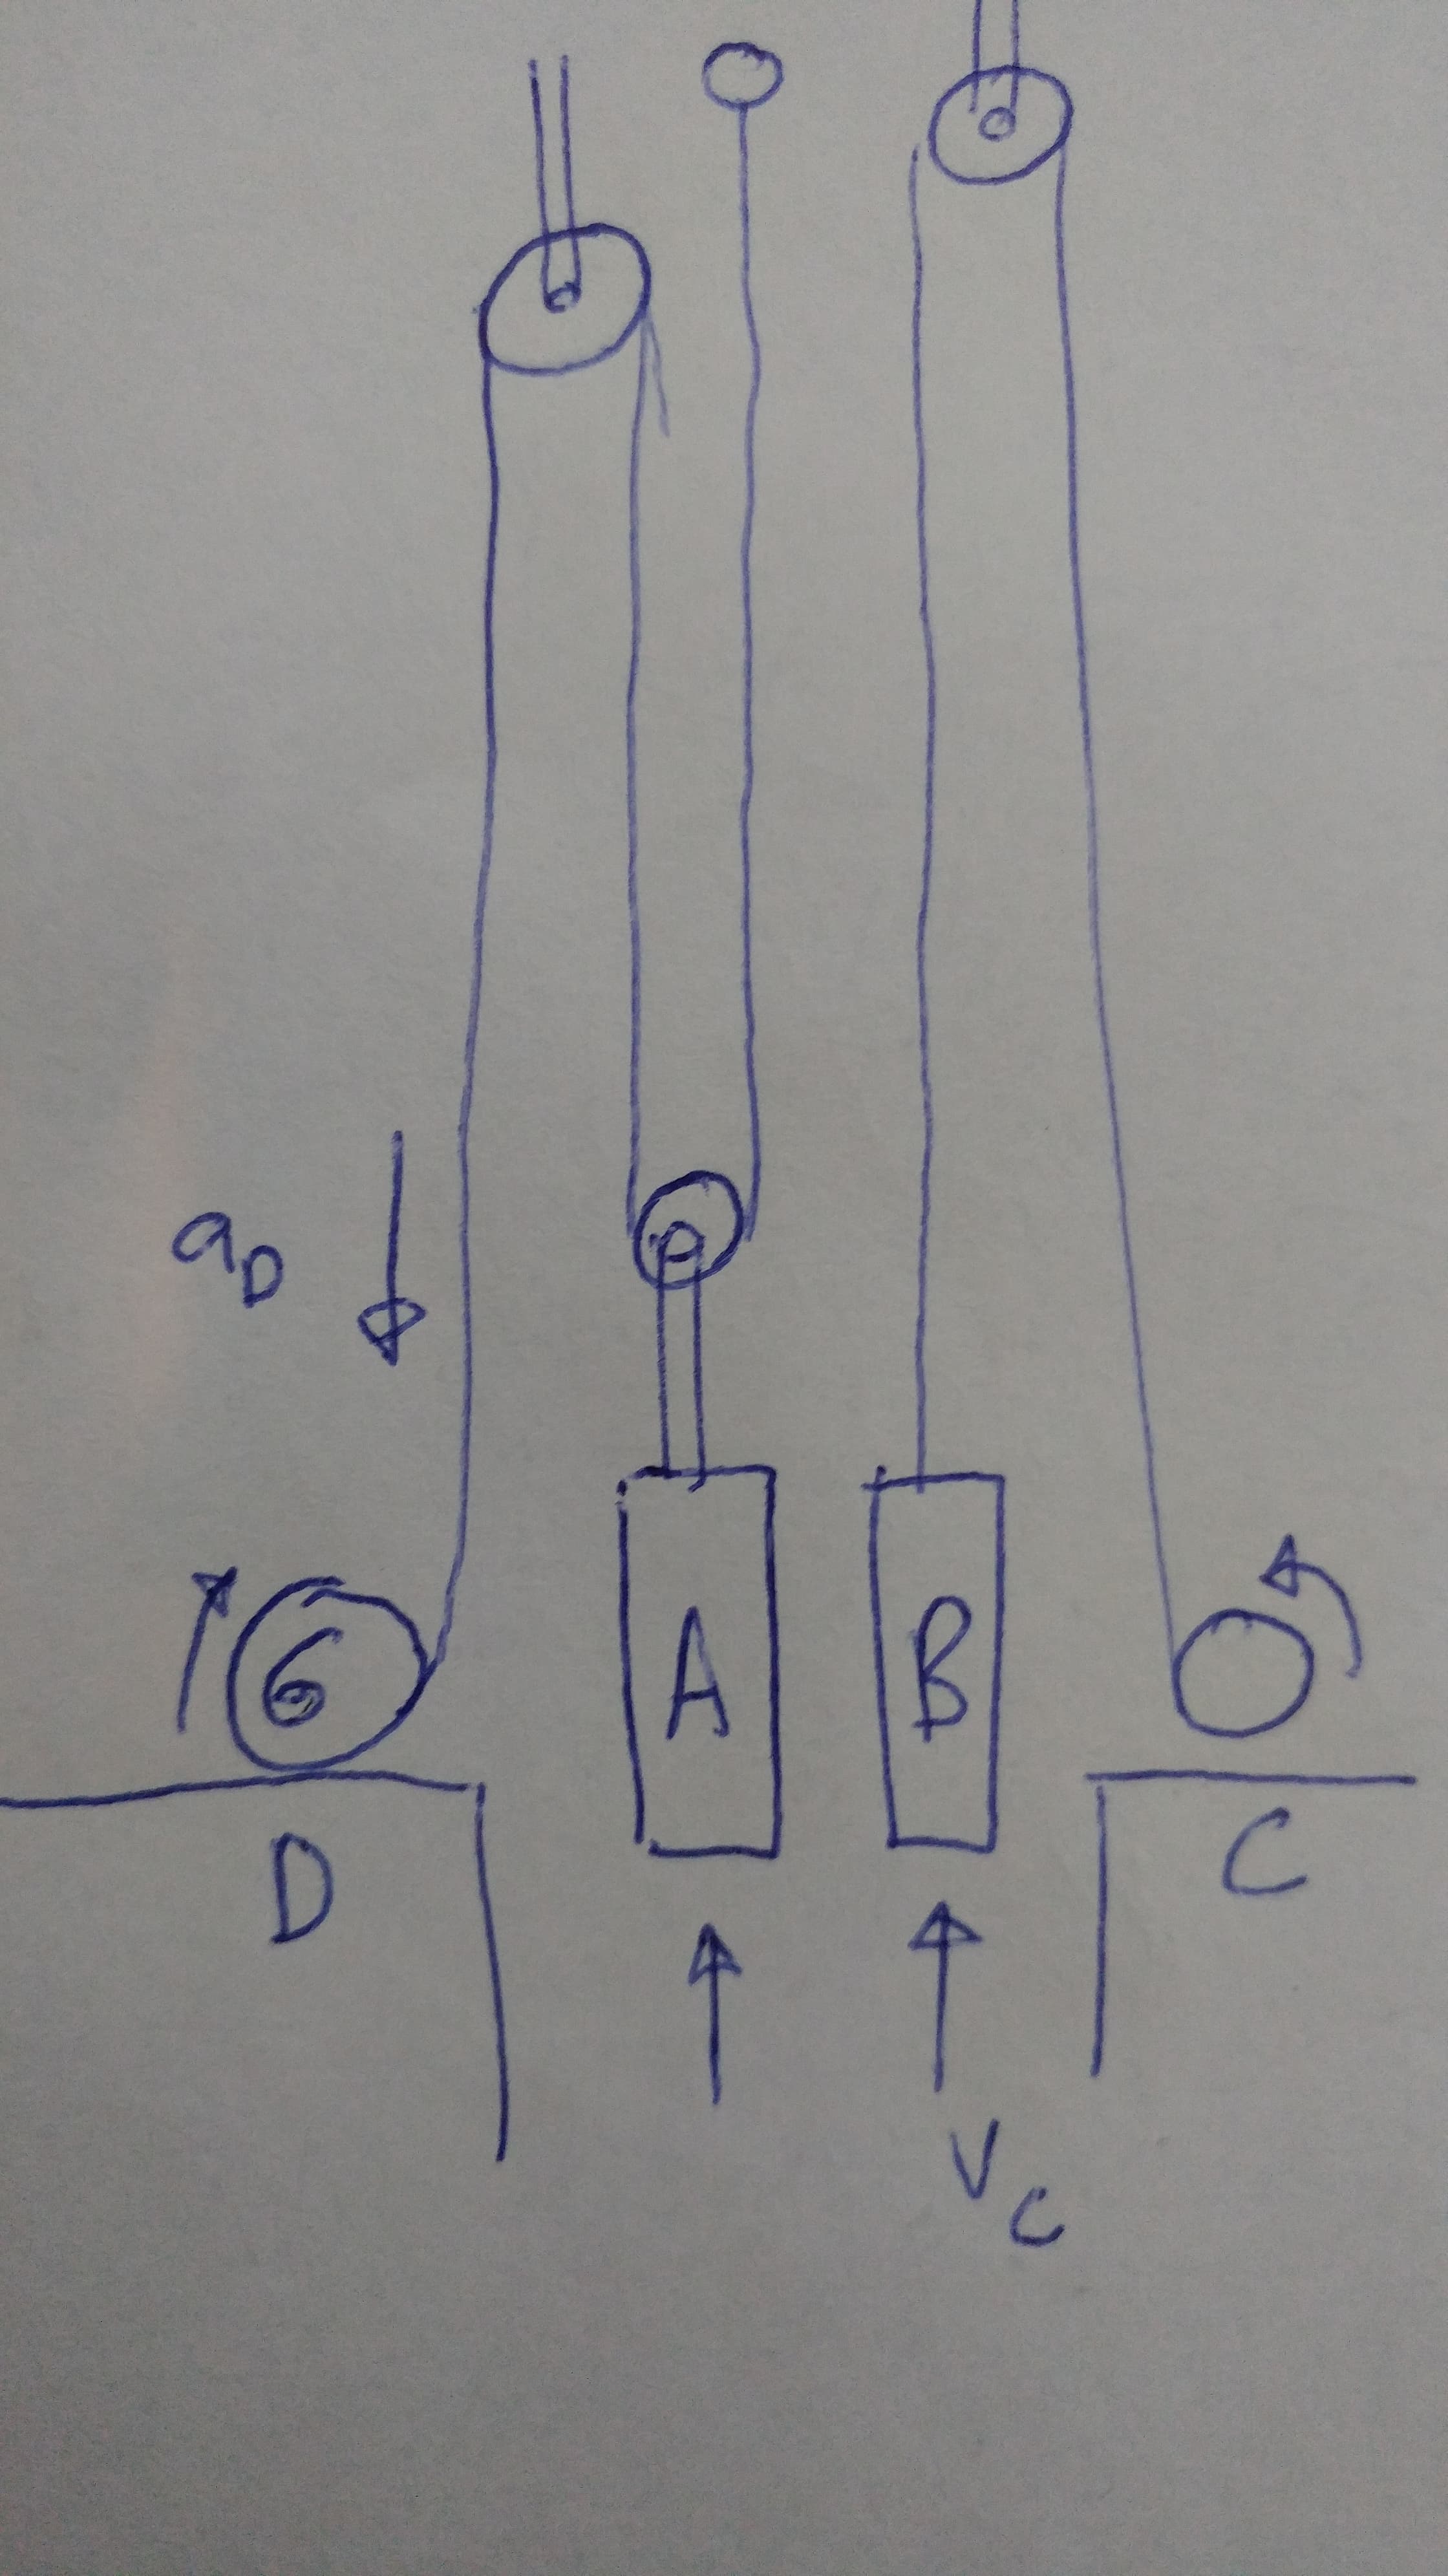 a_D
A
B
D
C
V_C